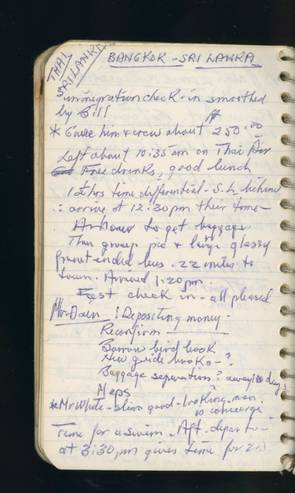 THAI
SRI LANKA
BANGKOK - SRI LANKA
immigration check-in smoothed
by Bill
* Gave him & crew about 250.00
Left about 10:35 am on Thai Air
Free drinks, good lunch
1½ hrs time differential - S.L. behind
∴ arrive at 12:30 pm their time -
hour to get baggage
Then group pic & large glassy
front-ended bus. 22 miles to
town. Arrived 1:20 pm.
Fast check in - all pleased
Mr. : Depositing money -
Reconfirm
Borrow bird book
New guide books - ?
Baggage separation? away 10 days
Maps
* Mr White - slim good-looking man.
is concierge
Time for a swim. Aft. departure
at 3:30 pm gives time for